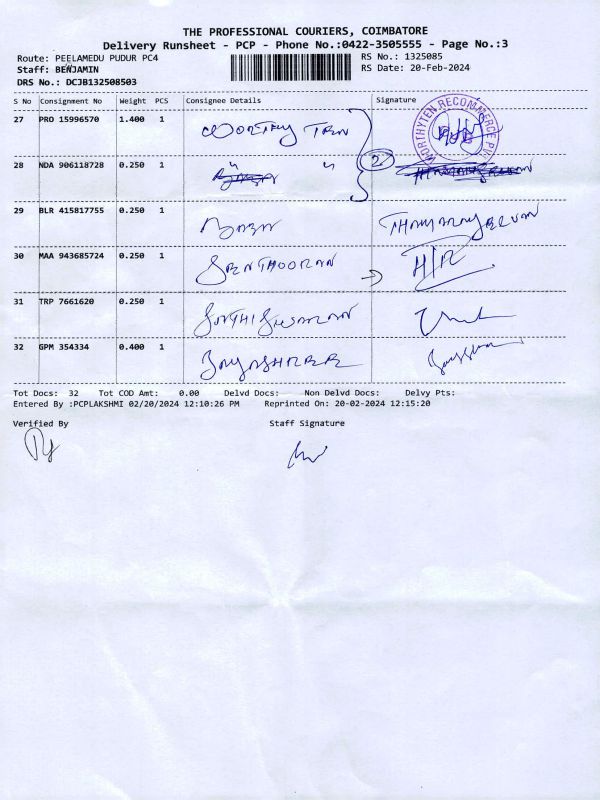 THE PROFESSIONAL COURIERS, COIMBATORE
Delivery Runsheet - PCP - Phone No.:0422-3505555 - Page No.:3
Route: PEELAMEDU PUDUR PC4
RS No.: 1325085
Staff: BENJAMIN
RS Date: 20-Feb-2024
DRS No.: DCJB132508503
S No Consignment No Weight PCS Consignee Details Signature
27 PRO 15996570 1.400 1 WORTHY TEN
WORTHYTEN RECOMMERCE
28 NDA 906118728 0.250 1 " " 2
29 BLR 415817755 0.250 1
30 MAA 943685724 0.250 1 SENTHOORAN
31 TRP 7661620 0.250 1
32 GPM 354334 0.400 1 JAYASHREE
Tot Docs: 32 Tot COD Amt: 0.00 Delvd Docs: Non Delvd Docs: Delvy Pts:
Entered By :PCPLAKSHMI 02/20/2024 12:10:26 PM Reprinted On: 20-02-2024 12:15:20
Verified By Staff Signature